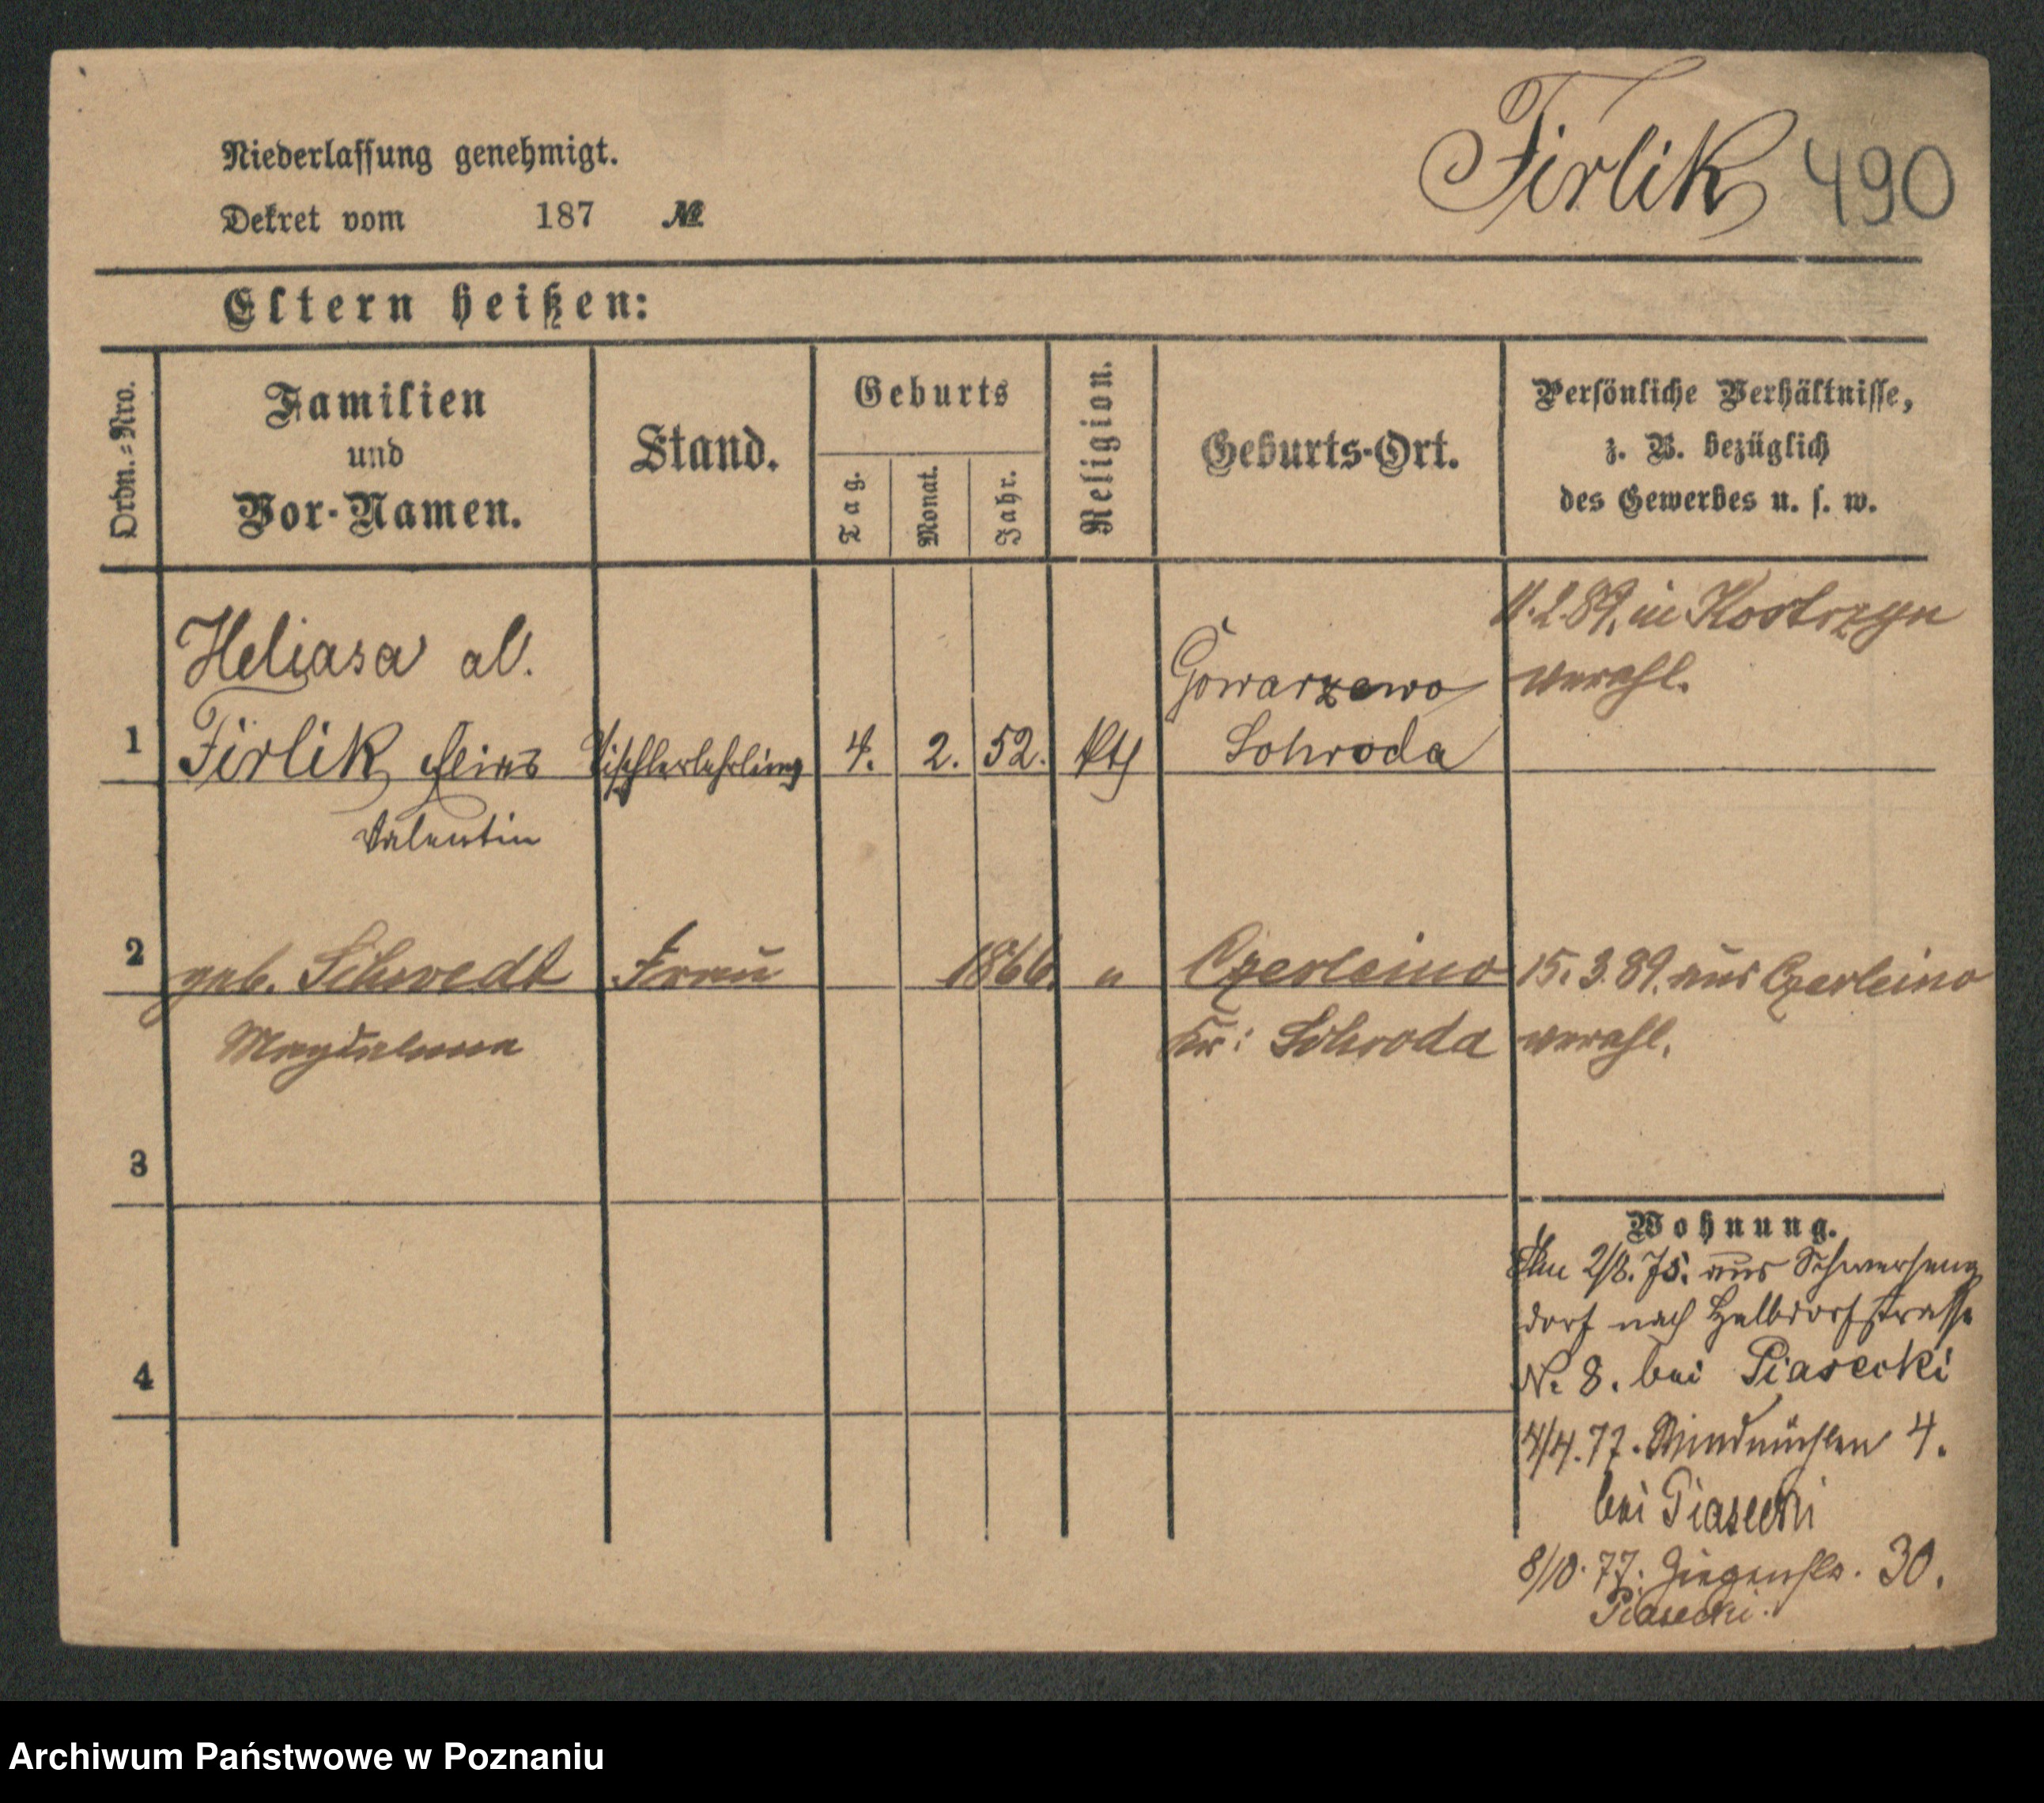 Niederlassung genehmigt.
Dekret vom 187 №
Firlik 490
Eltern heißen:
Ordn.-Nro.
Familien
und
Vor-Namen.
Stand.
Geburts
Tag.
Monat.
Jahr.
Religion.
Geburts-Ort.
Persönliche Verhältnisse,
z. B. bezüglich
des Gewerbes u. s. w.
Heliasa al.
1 Firlik Tischlerlehrling 4. 2. 52. kth
Valentin
Gowarzewo
Schroda
2.89. in Kostrzyn
verehl.
2 geb. Schwedt Frau 1866. " Czerleino 15. 3. 89. aus Czerleino
Magdalena Kr: Schroda verehl.
3
4
Wohnung.
2/8. 75. aus Schwersenz
dorf nach Halbdorfstrasse
N. 8. bei Piasecki
4/4. 77. Windmühlen 4.
bei Piasecki
8/10. 77. 30.
Piasecki.
Archiwum Państwowe w Poznaniu